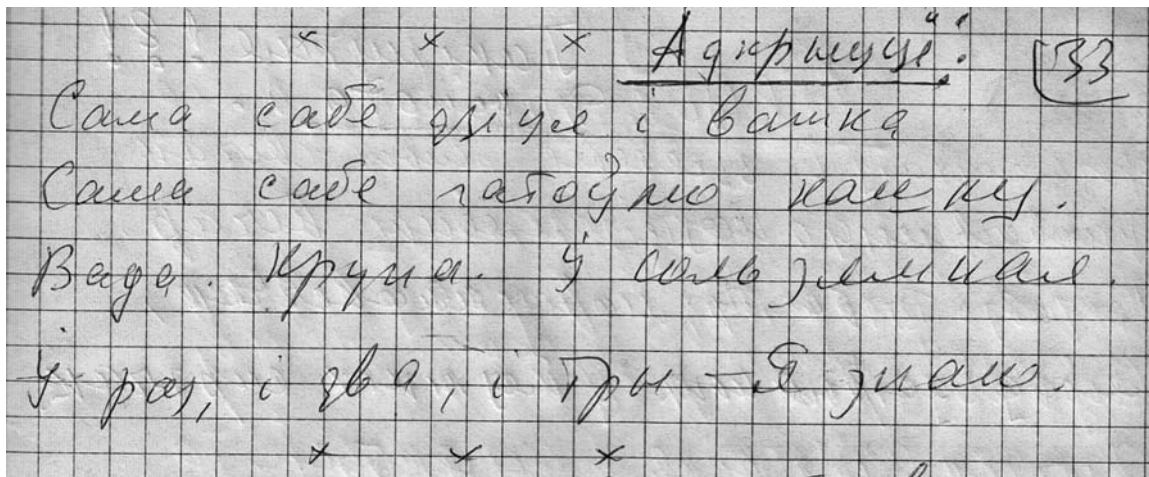 × × × "Адкрыццё". 33
Сама сабе дзіця і бацька
Сама сабе гатоўлю кашку.
Вада. Крупа. І соль зямная.
І раз, і два, і тры – Я знаю.
× × ×